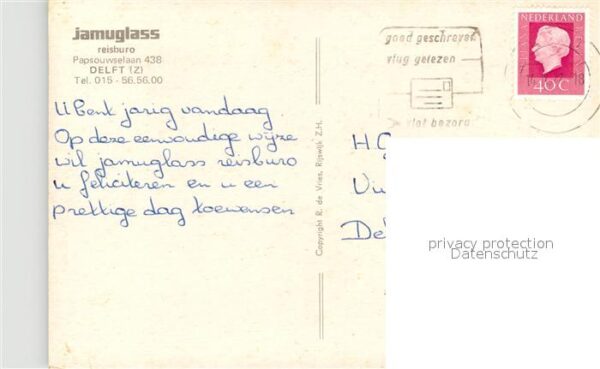 jamuglass
reisburo
Papsouwselaan 438
DELFT (Z)
Tel. 015 - 56.56.00
U bent jarig vandaag.
Op deze eenvoudige wijze
wil jamuglass reisburo
u feliciteren en u een
prettige dag toewensen
Copyright R. de Vries, Rijswijk Z.H.
goed geschreven
vlug gelezen
vlot bezorgd
NEDERLAND
40c
H.
De
privacy protection
Datenschutz